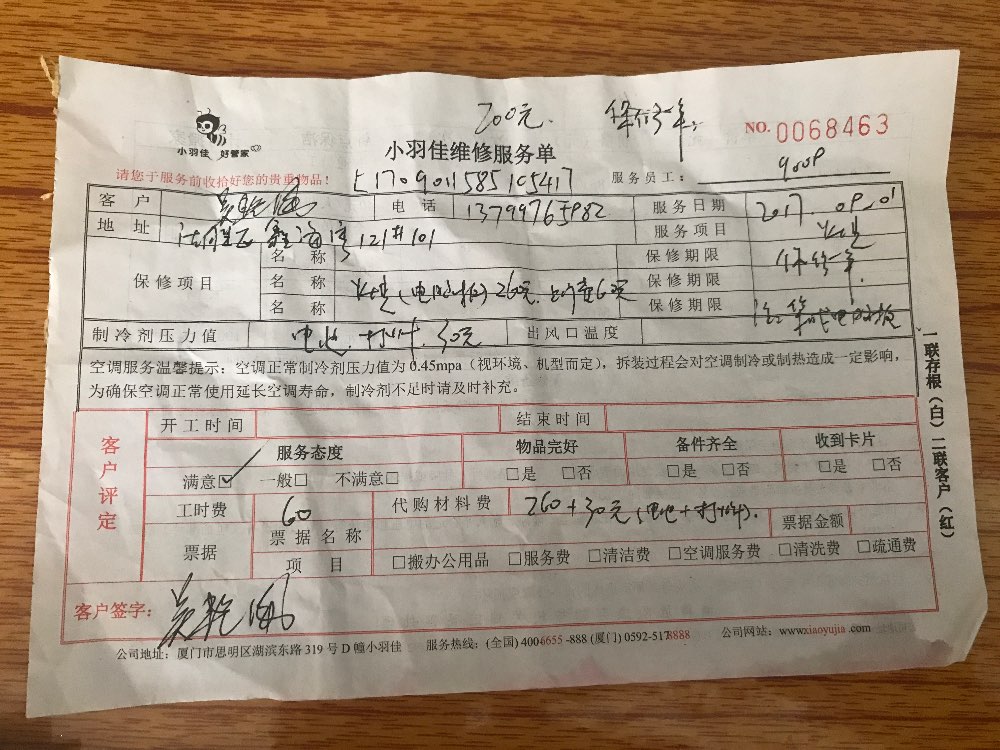 200元. 保修一年.
NO. 0068463
小羽佳 好管家
小羽佳维修服务单
请您于服务前收拾好您的贵重物品! 服务员工:
客 户 电 话 服务日期 2017
地 址 121#101 服务项目
保修项目 名 称 保修期限 保修一年.
名 称 260元 保修期限
名 称 保修期限
制冷剂压力值 电池 30元 出风口温度
空调服务温馨提示:空调正常制冷剂压力值为0.45mpa(视环境、机型而定),拆装过程会对空调制冷或制热造成一定影响,
为确保空调正常使用延长空调寿命,制冷剂不足时请及时补充。
客户评定
开工时间 结束时间
服务态度 物品完好 备件齐全 收到卡片
满意☑ 一般□ 不满意□ □是 □否 □是 □否 □是 □否
工时费 60 代购材料费 260+30元(电池+
票据 票据名称 票据金额
项 目 □搬办公用品 □服务费 □清洁费 □空调服务费 □清洗费 □疏通费
客户签字:
公司地址:厦门市思明区湖滨东路 319 号 D 幢小羽佳 服务热线:(全国) 4006655-888 (厦门) 0592-5178888 公司网站:www.xiaoyujia.com
一联存根(白)二联客户(红)